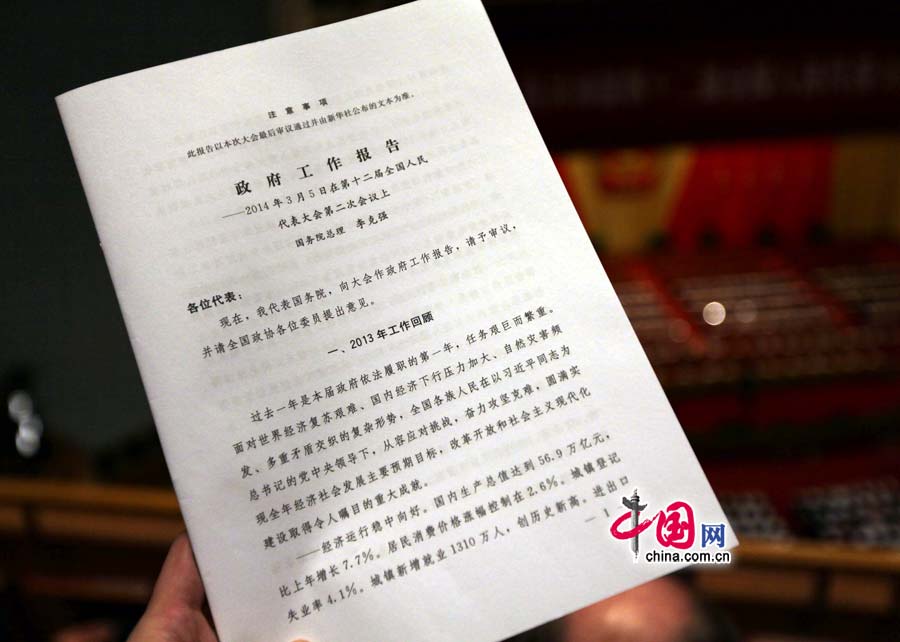 注意事项
此报告以本次大会最后审议通过并由新华社公布的文本为准。
政府工作报告
——2014年3月5日在第十二届全国人民
代表大会第二次会议上
国务院总理 李克强
各位代表：
现在，我代表国务院，向大会作政府工作报告，请予审议，
并请全国政协各位委员提出意见。
一、2013年工作回顾
过去一年是本届政府依法履职的第一年，任务艰巨而繁重。
面对世界经济复苏艰难、国内经济下行压力加大、自然灾害频
发、多重矛盾交织的复杂形势，全国各族人民在以习近平同志为
总书记的党中央领导下，从容应对挑战，奋力攻坚克难，圆满实
现全年经济社会发展主要预期目标，改革开放和社会主义现代化
建设取得令人瞩目的重大成就。
——经济运行稳中向好。国内生产总值达到56.9万亿元，
比上年增长7.7%。居民消费价格涨幅控制在2.6%。城镇登记
失业率4.1%。城镇新增就业1310万人，创历史新高。进出口
— 1
中国网
china.com.cn